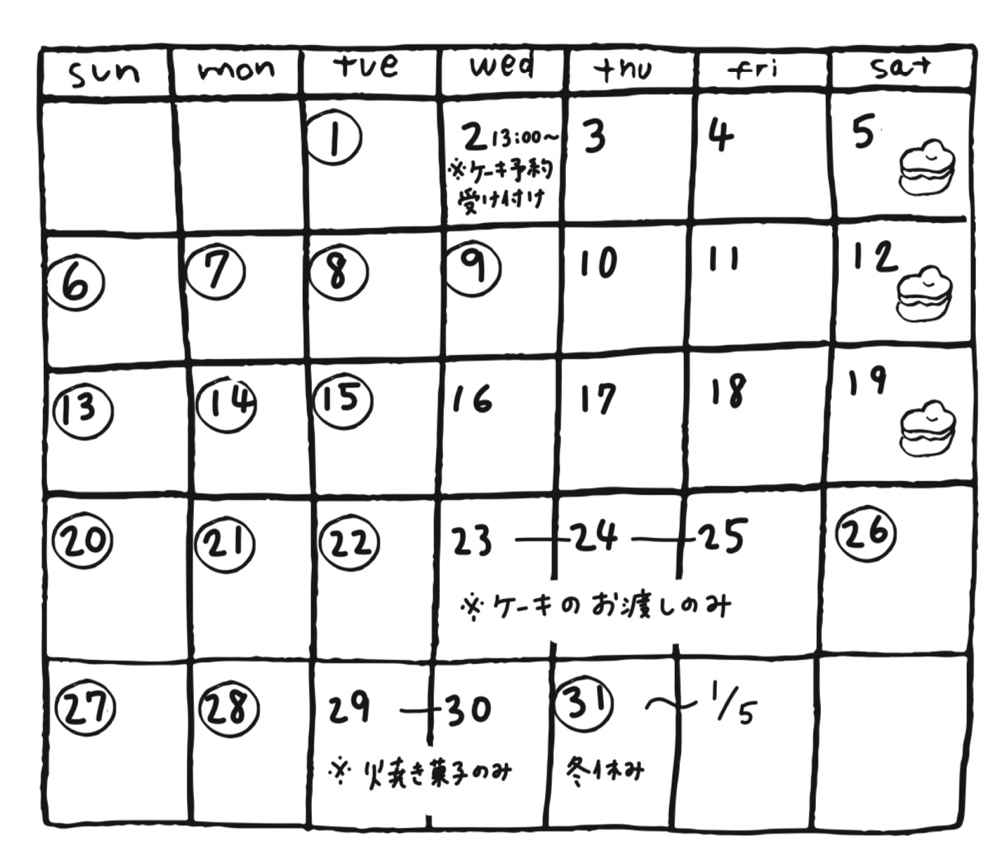 sun mon tue wed thu fri sat
1 2 13:00~ 3 4 5
※ケーキ予約
受け付け
6 7 8 9 10 11 12
13 14 15 16 17 18 19
20 21 22 23 — 24 — 25 26
※ケーキのお渡しのみ
27 28 29 — 30 31 ～ 1/5
※焼き菓子のみ 冬休み